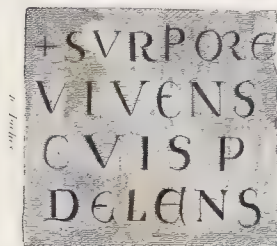 +SVRPORE
VIVENS
CVISP
DELENS